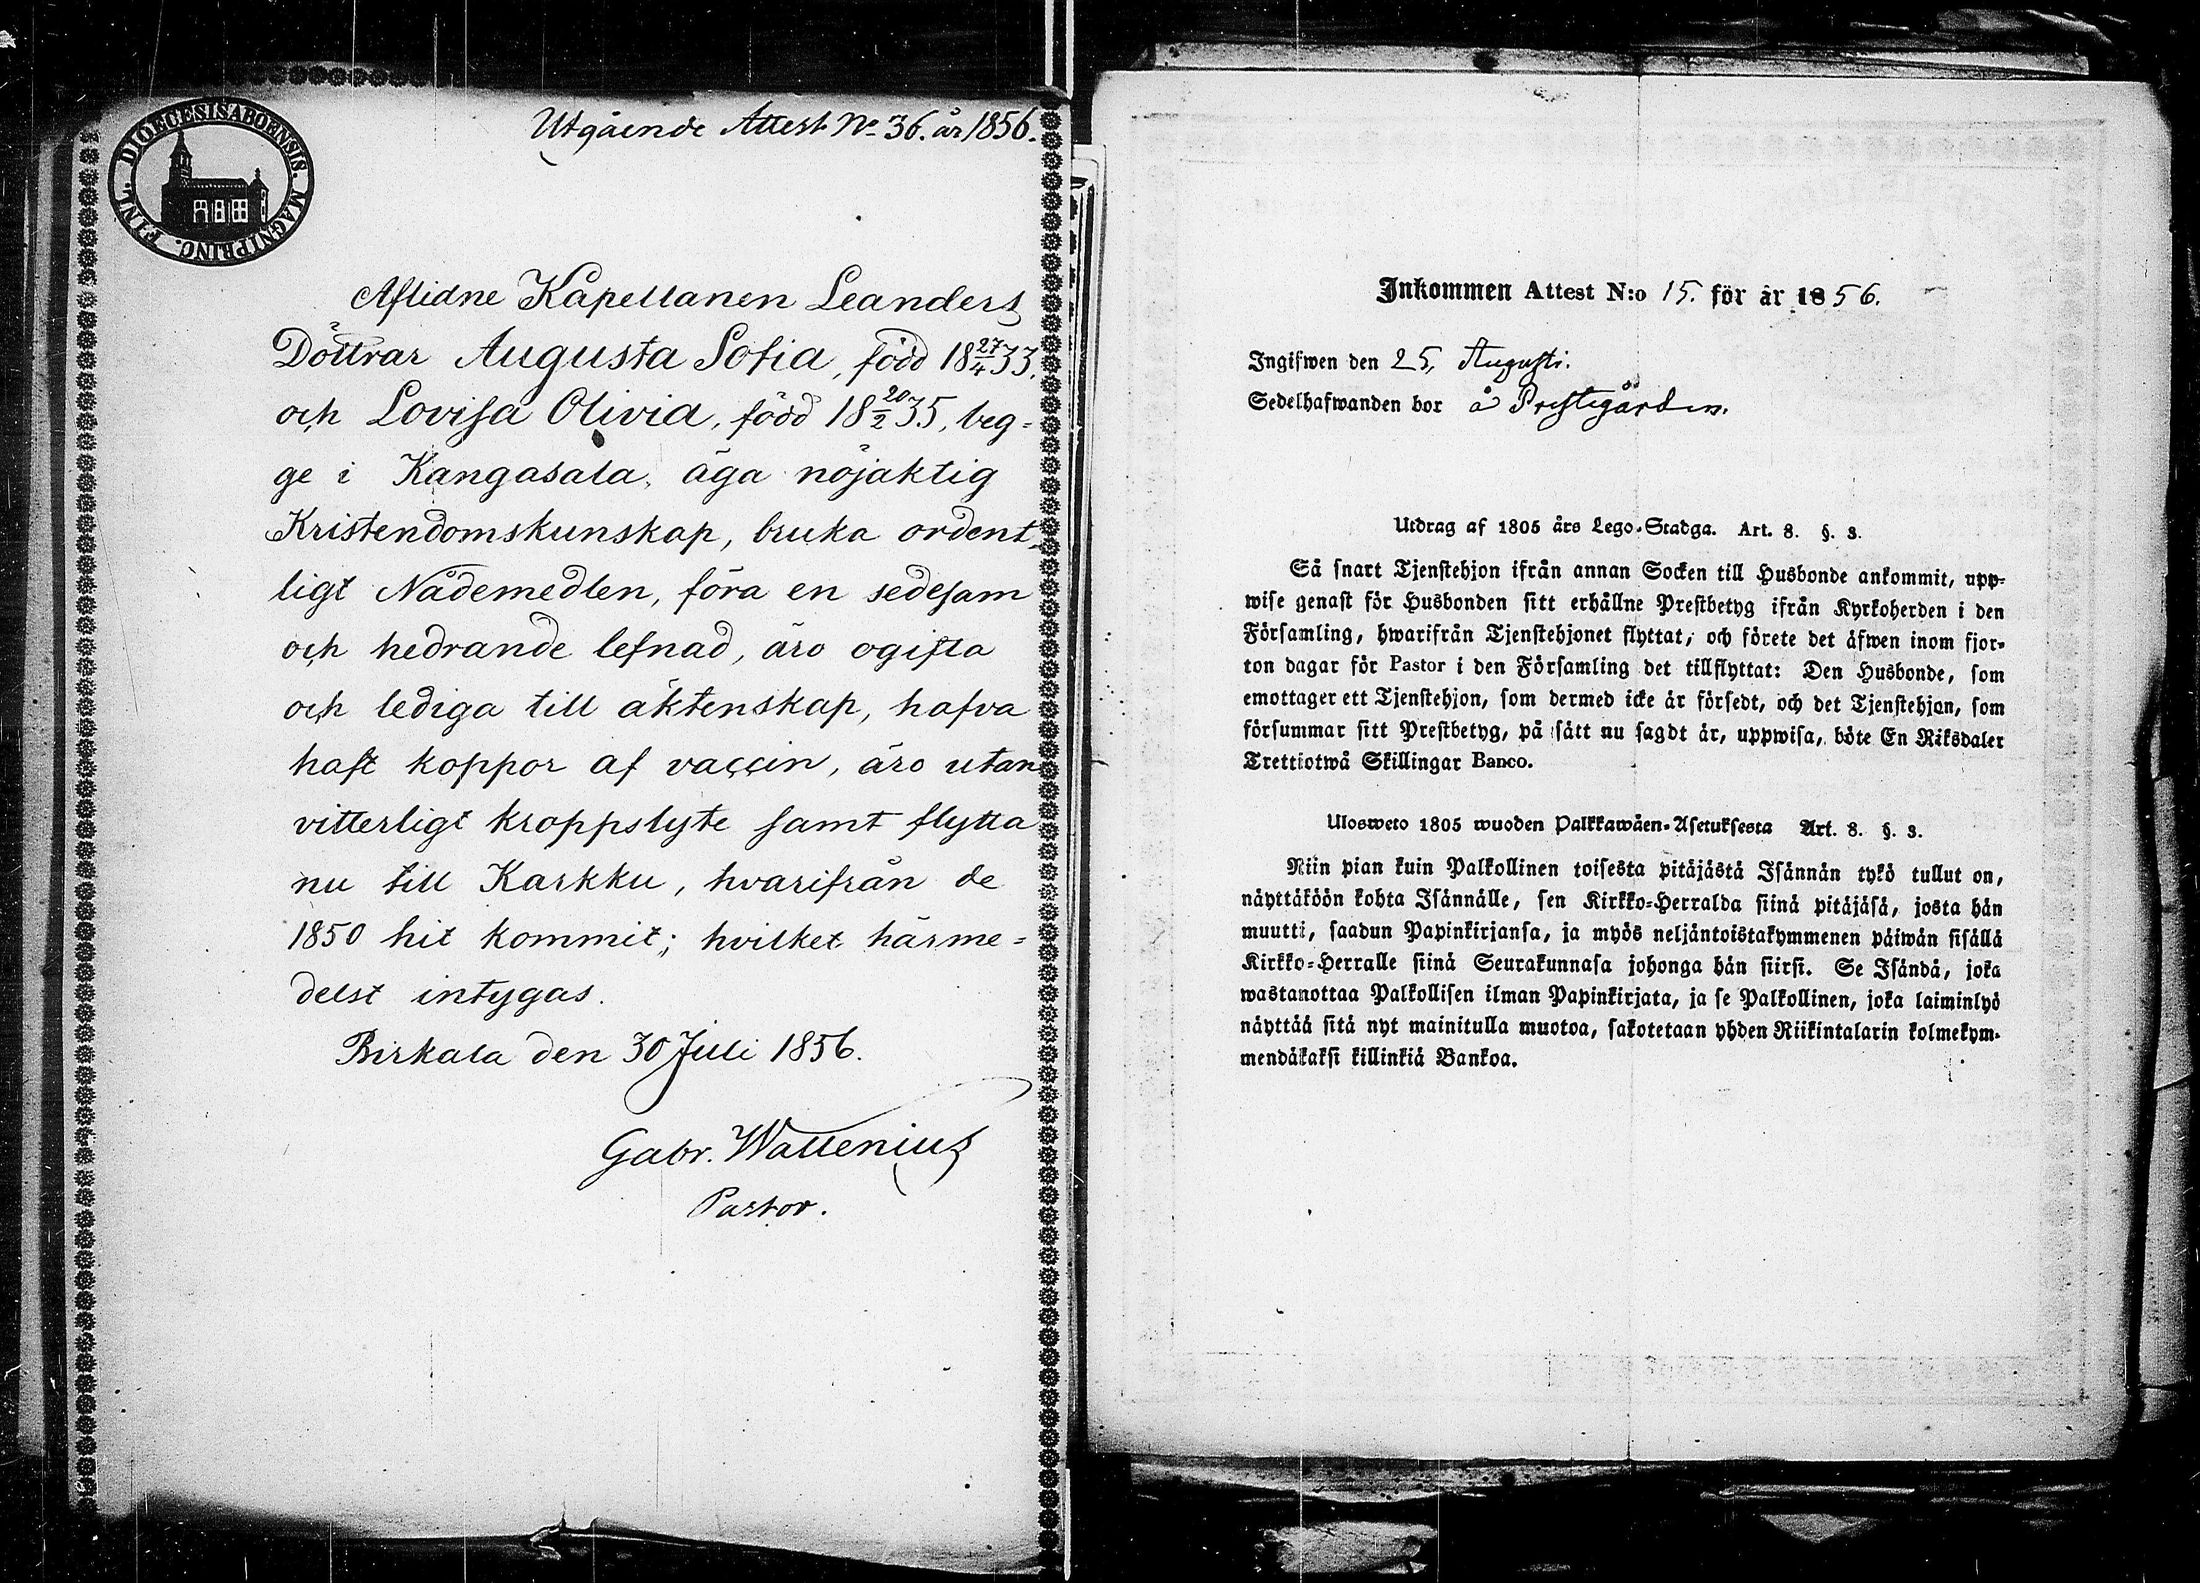 DIOECESIS ABOENSIS. MAGNI PRINC. FINL.
Utgående Attest No 36. år 1856.
Aflidne Kapellanen Leanders
Döttrar Augusta Sofia, född 18 27/4 33,
och Lovisa Olivia, född 18 20/2 35, beg-
ge i Kangasala, äga nöjaktig
Kristendomskunskap, bruka ordent-
ligt Nådemedlen, föra en sedesam
och hedrande lefnad, äro ogifta
och lediga till äktenskap, hafva
haft koppor af vaccin, äro utan
vitterligt kroppslyte samt flytta
nu till Karkku, hvarifrån de
1850 hit kommit; hvilket härme-
delst intygas.
Birkala den 30 Juli 1856.
Gabr. Wallenius
Pastor.
Inkommen Attest N:o 15. för år 1856.
Ingifwen den 25, Augusti.
Sedelhafwanden bor å Prestgården.
Utdrag af 1805 års Lego-Stadga. Art. 8. §. 3.
Så snart Tjenstehjon ifrån annan Socken till Husbonde ankommit, upp-
wise genast för Husbonden sitt erhållne Prestbetyg ifrån Kyrkoherden i den
Församling, hwarifrån Tjenstehjonet flyttat, och förete det äfwen inom fjor-
ton dagar för Pastor i den Församling det tillflyttat: Den Husbonde, som
emottager ett Tjenstehjon, som dermed icke är försedt, och det Tjenstehjon, som
försummar sitt Prestbetyg, på sätt nu sagdt är, uppwisa, böte En Riksdaler
Trettiotwå Skillingar Banco.
Ulosweto 1805 wuoden Palkkawäen-Asetuksesta Art. 8. §. 3.
Niin pian kuin Palkollinen toisesta pitäjästä Isännän tykö tullut on,
näyttäköön kohta Isännälle, sen Kirkko-Herralda siinä pitäjäsä, josta hän
muutti, saadun Papinkirjansa, ja myös neljäntoistakymmenen päiwän sisällä
Kirkko-Herralle siinä Seurakunnasa johonga hän siirsi. Se Isändä, joka
wastanottaa Palkollisen ilman Papinkirjata, ja se Palkollinen, joka laiminlyö
näyttää sitä nyt mainitulla muotoa, sakotetaan yhden Riikintalarin kolmekym-
mendäkaksi killinkiä Bankoa.